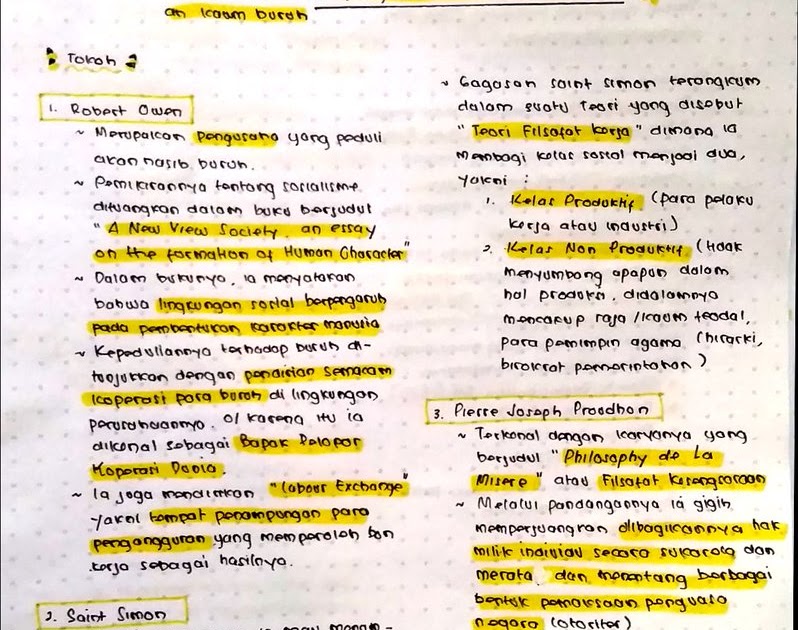 an kaum buruh
Tokoh
1. Robert Owen
~ Merupakan pengusaha yang peduli
akan nasib buruh.
~ Pemikirannya tentang socialisme
dituangkan dalam buku berjudul
"A New View Society, an essay
on the formation of Human Character"
~ Dalam bukunya, ia menyatakan
bahwa lingkungan social berpengaruh
pada pembentukan karakter manusia
~ Kepeduliannya terhadap buruh di-
tunjukkan dengan pendirian semacam
koperasi para buruh di lingkungan
perusahaannya. o/ karena itu ia
dikenal sebagai Bapak Pelopor
Koperasi Dunia.
~ Ia juga mendirikan "Labour Exchange"
yakni tempat penampungan para
pengangguran yang memperoleh bon
kerja sebagai hasilnya.
2. Saint Simon
~ Gagasan saint simon terangkum
dalam suatu teori yang disebut
"Teori Filsafat kerja" dimana ia
membagi kelas sosial menjadi dua,
yakni :
1. Kelas Produktif (para pelaku
kerja atau industri)
2. Kelas Non Produktif (tidak
menyumbang apapun dalam
hal produksi. didalamnya
mencakup raja /kaum feodal,
para pemimpin agama (hirarki,
birokrat pemerintahan)
3. Pierre Joseph Proudhon
~ Terkenal dengan karyanya yang
berjudul "Philosophy de La
Misere" atau Filsafat Kesengsaraan
~ Melalui pandangannya ia gigih
memperjuangkan dibagikannya hak
milik individu secara sukarela dan
merata dan menentang berbagai
bentuk pemaksaan penguasa
negara (otoriter)